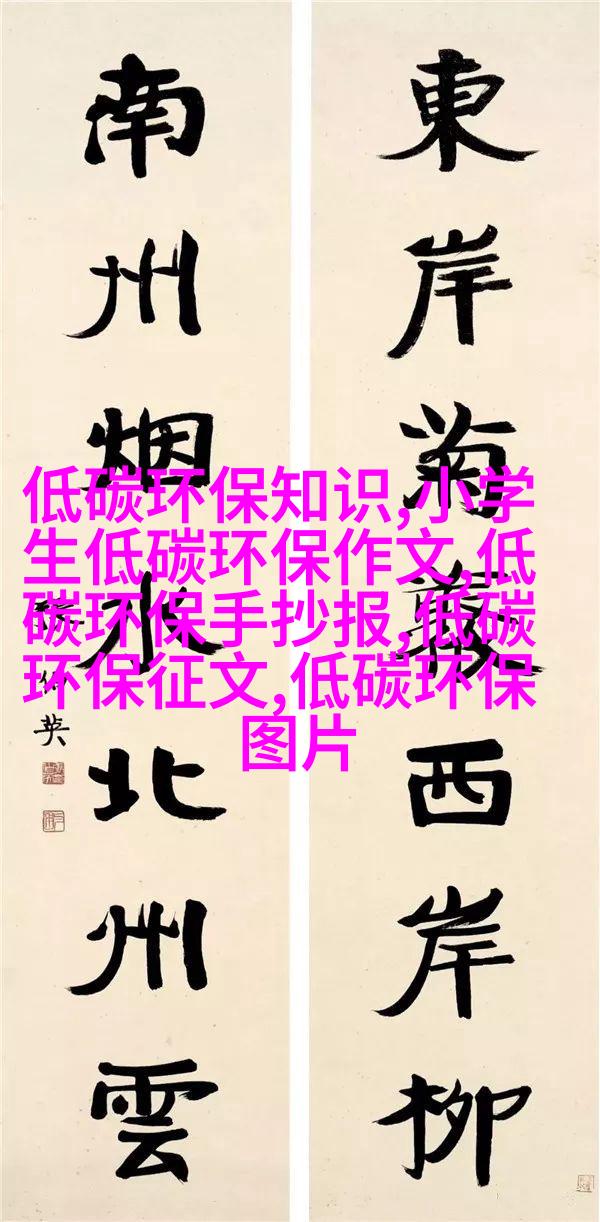 東岸菊西岸柳
南州烟水北州雲
英
低碳环保知识,小学
生低碳环保作文,低
碳环保手抄报,低碳
环保征文,低碳环保
图片